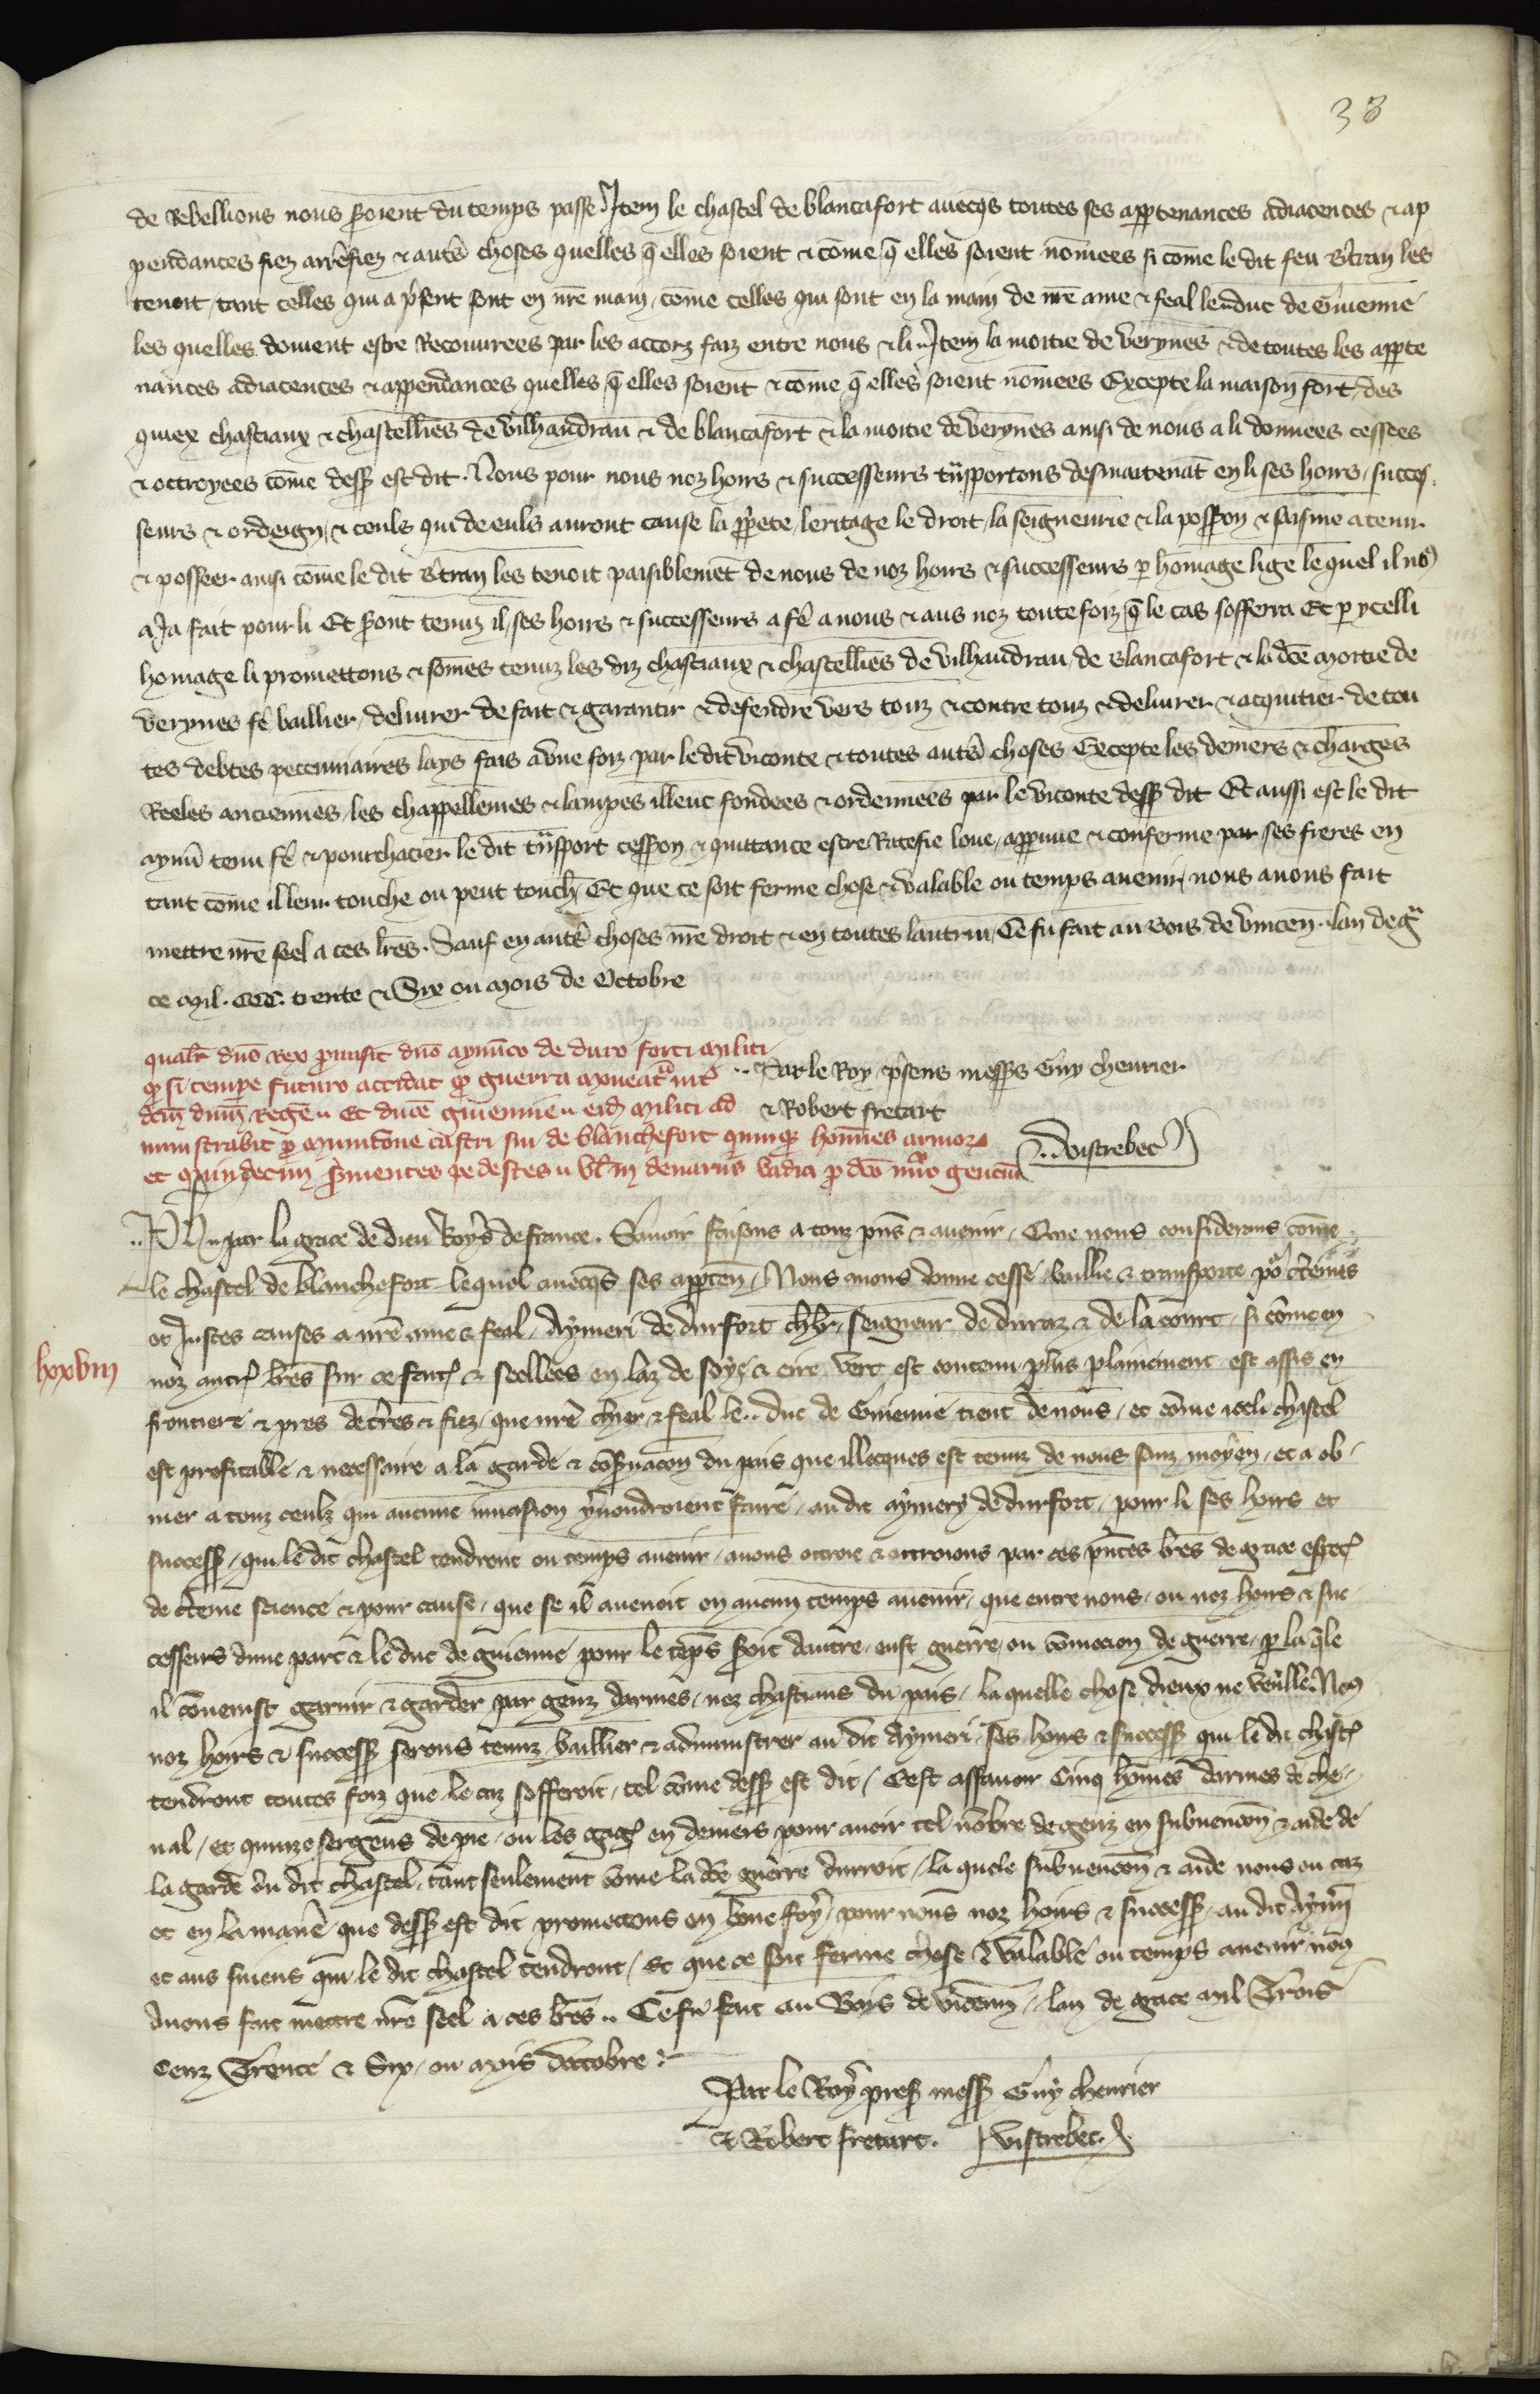 38
de Rebellions nous soient du temps passe. Item le chastel de blancafort avecqs toutes ses appartenances adiacences & ap
pendances fiez arrefiez & autres choses quelles q̄ elles soient & cōme q̄ elles soient nōmees si cōme le dit feu Btran les
tenoit, tant celles qui a psent sont en nr̄e main, cōme celles qui sont en la main de nr̄e ame & feal le duc de Guienne
les quelles doivent estre Recouvrees par les accorz faiz entre nous & li. Item la moitie de Verynes & de toutes les apparte
nances adiacences & appendances quelles q̄ elles soient & cōme q̄ elles soient nōmees Excepte la maison fort, des
quiex chastiaux & chastellies de Vilhandrau & de blancafort & la moitie de Verynes ainsi de nous a li donnees cessees
& ottroyees cōme dess est dit. Nous pour nous noz hoirs & successeurs tnsportons desmaitenāt en li ses hoirs, succes
seurs & ordeign, & ceuls qui de euls auront cause la pprete, leritage le droit, la seigneurie & la possōn & saisine a tenir
& posseer ainsi cōme le dit Btran les tenoit paisiblemēt de nous de noz hoirs & successeurs p homage lige le quel il no9
a Ja fait pour li Et sont tenuz il, ses hoirs & successeurs a fē a nous & aus noz toutefoiz q̄ le cas sofferra Et p ycelli
homage li promettons & sōmes tenuz les diz chastiaux & chastellies de Vilhandrau, de Blancafort & la dce moitie de
Verynes fē baillier, delivrer de fait & garantir & defendre vers touz & contre touz & delivrer & acquitier de tou
tes debtes peccuniaires lays fais avne foiz par le dit viconte & toutes autres choses Excepte les deniers & charges
Reeles anciennes, les chappellenies & lampes illeuc fondees & ordennees par le viconte dess dit Et aussi est le dit
aymī tenu fē & pourchacier le dit tnsport cessōn & quittance estre Ratefie loue, appuue & conferme par ses freres en
tant cōme il leur touche ou peut touch Et que ce soit ferme chose & valable ou temps avenir, nous avons fait
mettre nr̄e seel a ces lr̄es. Sauf en autres choses nr̄e droit & en toutes lautrui, Ce fu fait au bois de Vincen. lan de gra
ce mil. CCC. trente & Six ou mois de Octobre
qualr dn̄s Rex pmisit dn̄o aymīco de duro forti militi
q̄ si tempe futuro accidat q̄ guerra moveat̄ int
dcm̄ dnm̄ Regē Et ducē guiennie eid militi ad
ministrabit p municōne castri sui de blanchefort quinq̄ homines armor
et quindecim svientes pedestes vl̄ in denariis vadia p dco nūo gentiū
.. Par le Roy, psens messrs Guy chevrier
& Robert fretart
.. Vistrebec
lxxviii
.. Ph .. par la grace de dieu Roys de france. Savoir faisons a touz pn̄s & avenir, Que nous considerans cōme
le chastel de blanchefort lequel avecqs ses apparten, Nous avons donne cesse baillie & transporte po ctēnes
et Justes causes a nr̄e ame & feal, Aymeri de durfort chlr, seigneur de duraz & de la court, si cōme en
noz autres lr̄es sur ce faites & seellees en laz de soye & cire vert est contenu plus plainement, est assis en
frontiere & pres de tr̄es & fiez, que nr̄e chier & feal le .. duc de Guienne tient de nous, et cōme icelu chastel
est profitable & necessaire a la garde & cōsvacōn du pais que illecques est tenuz de nous sanz moyen, et a ob
vier a touz ceulz qui aucune invasion y voudroient faire, au dit aymery de durfort, pour li ses hoirs et
success, qui le dit chastel tendront ou temps avenir, avons ottroie & ottroions par ces pn̄tes lr̄es de grace espec
de ctēne science & pour cause, que se il avenoit en aucun temps avenir, que entre nous, ou noz hoirs & suc
cesseurs dune part & le duc de guienne pour le tēps soit dautre, eust guerre, ou cōmocion de guerre, p la q̄le
il cōvenist garnir & garder par genz darmes, noz chastiaus du pais, la quelle chose dieux ne veulle. No9
noz hoirs & success serons tenuz baillier & administrer au dit Aymeri ses hoirs & success qui le dit chastel
tendront toutes foiz que le caz sofferoit, tel cōme dess est dit, Cest assavoir Cinq hōmes darmes de che
val, et quinze sergens de pie, ou les gages en deniers pour avoir tel nōbre de genz en subvencōn & aide de
la garde du dit chastel, tant seulement cōme la dce guerre durroit, la quele subvencōn & aide nous ou caz
et en la manē que dess est dit promettons en bōne foy, pour nous noz hoirs & success, au dit Aymī
et aus siens qui le dit chastel tendront, Et que ce soit ferme chose & valable ou temps avenir no9
Avons fait mettre nr̄e seel a ces lr̄es .. Ce fu fait au Boys de Vicenn, lan de grace mil Trois
Cenz Trente & Six, ou moys doctobre
Par le Roy pres mess Guy chevrier
& Robert fretart. Vistrebec